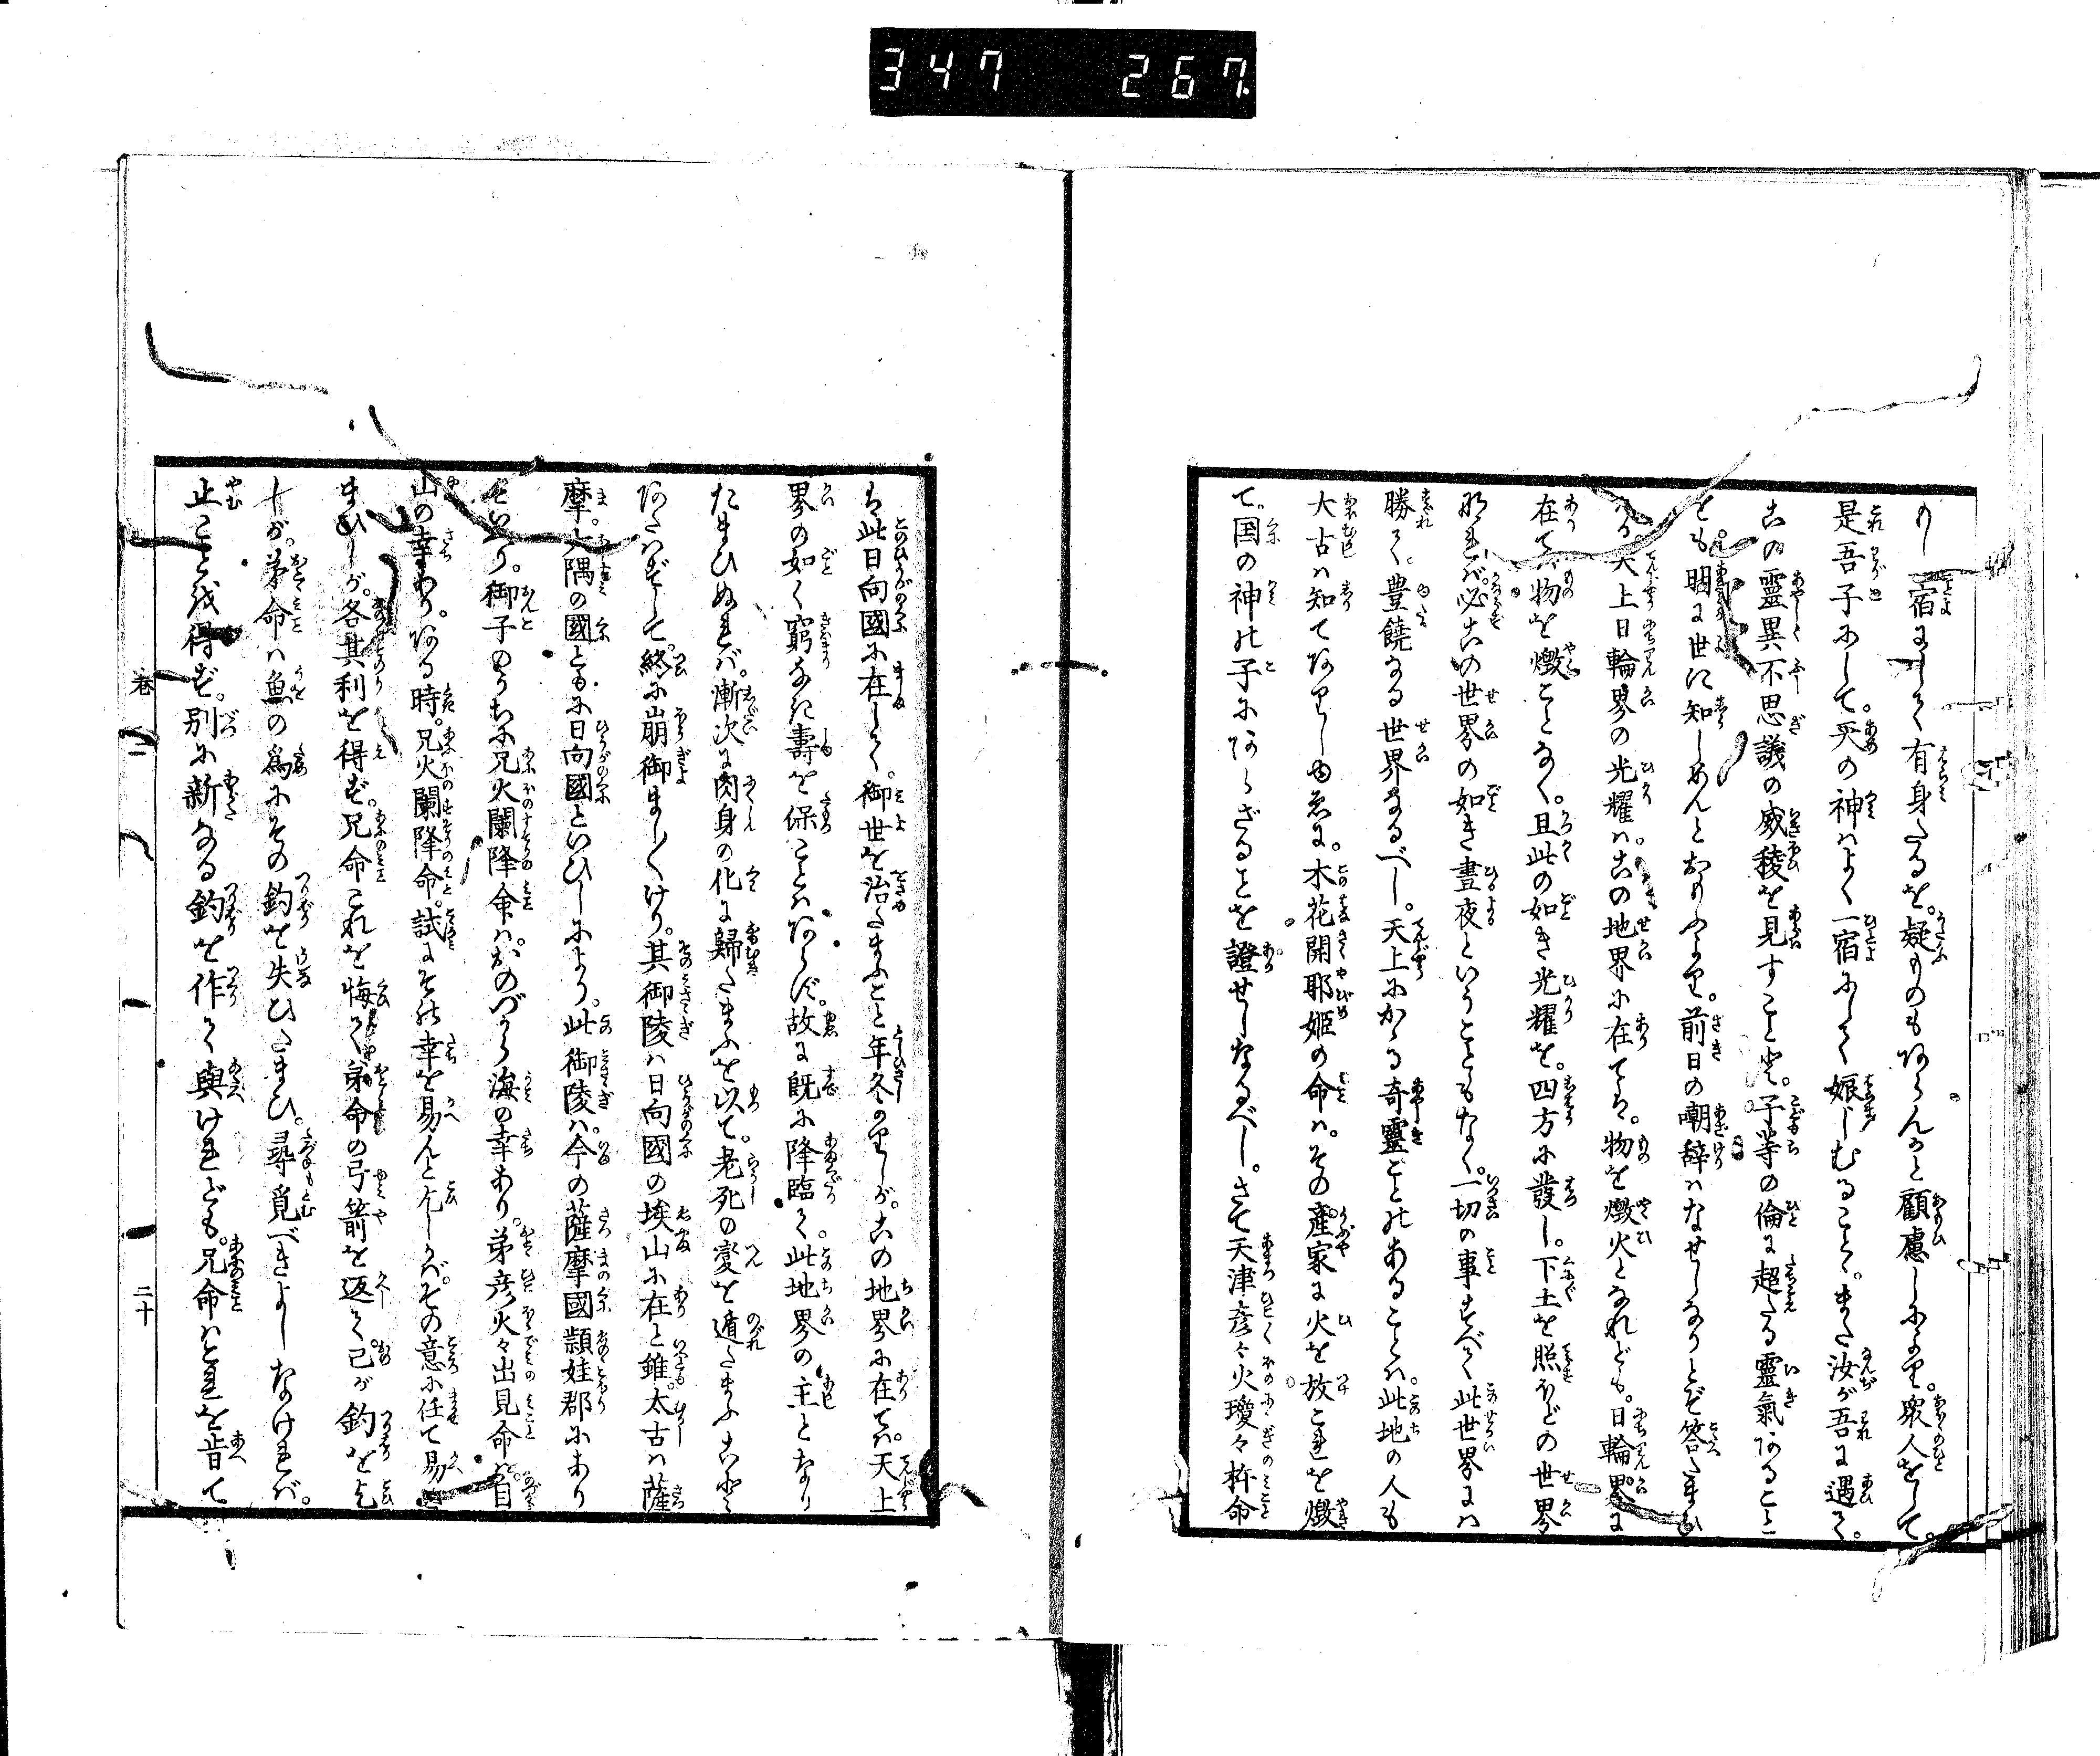 347 267.
一宿にして有身たるを。疑ものもあらんかと顧慮しによりて。衆人をして。
是吾子にして。天の神はよく一宿にして娠しむること。また汝が吾に遇て。
この靈異不思議の威稜を見すことと。子等の倫に超たる靈氣あること
とも明に世に知しめんとおもふより。前日の嘲辞はなせしなりとぞ答たまひ
天上日輪界の光耀は。この地界に在ては。物を燬火となれども。日輪界に
在ては物を燬ことなく。且此の如き光耀を。四方に發し。下土を照すほどの世界
なれば。必この世界の如き晝夜といふこともなく。一切の事すべて此世界には
勝て。豊饒なる世界なるべし。天上にかゝる奇靈ことのあることは。此地の人も
大古は知てありしゆゑに。木花開耶姫の命は。その産家に火を放これを燬
て。国の神の子にあらざることを證せしなるべし。さて天津彦々火瓊々杵命
は此日向國に在して。御世を治たまふこと年久のりしが。この地界に在ては天上
界の如く窮なき壽を保ことはあらず。故に既に降臨て。此地界の主となり
たまひぬれば。漸次に肉身の化に歸たまふを以て。老死の変を遁たまふこと
あたはずして。終に崩御ましましけり。其御陵は日向國の埃山に在と雖。太古は薩
摩。大隅の國ともに日向國といひしにより。此御陵は。今の薩摩國頴娃郡にあり
といへり。御子のうちに兄火闌降命は。おのづから海の幸あり。弟彦火々出見命は。自
山の幸あり。ある時。兄火闌降命。試にその幸を易んと乞しかば。その意に任て易
まひしが。各其利を得ず。兄命これを悔て弟命の弓箭を返て。己が釣を乞
しが。弟命は魚の為にその釣を失ひたまひ。尋覓べきよしなければ。
止ことを得ず。別に新なる釣を作て與けれども。兄命はこれを肯て
巻二
二十